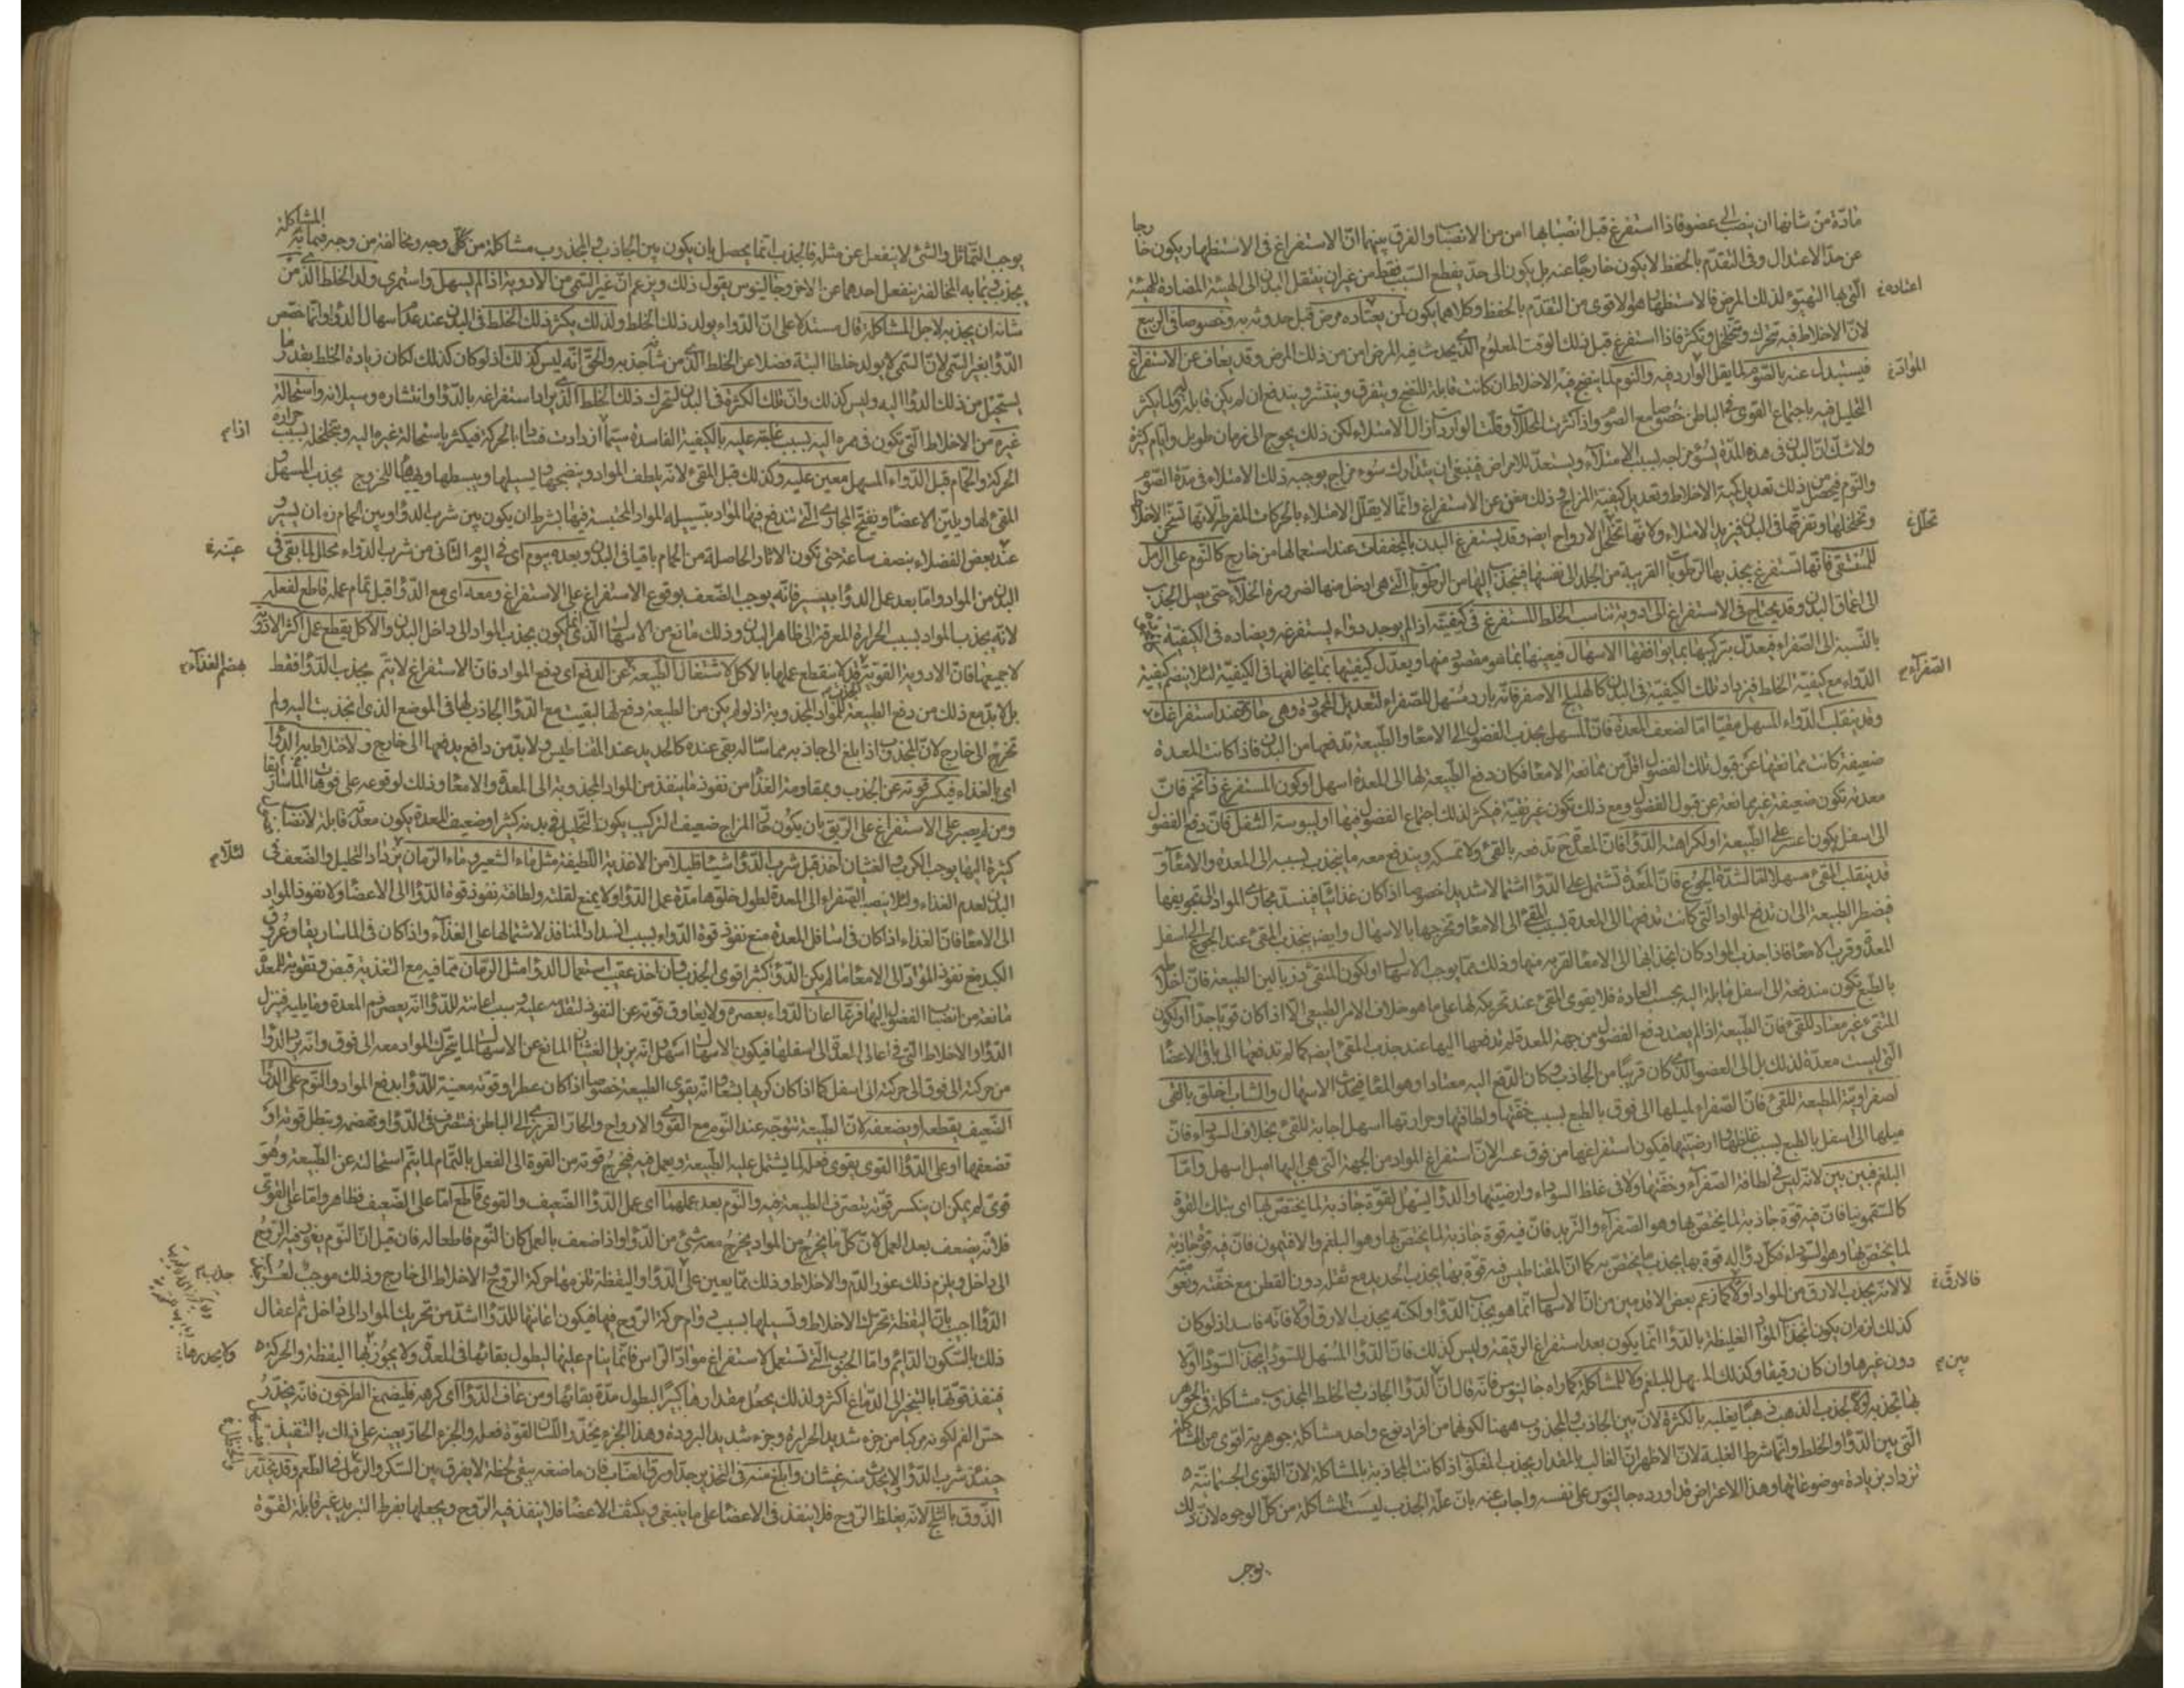 مادّة من شانها ان ينصب الى عضو فاذا استفرغ قبل انصبابها امن من الانصباب والفرق بينهما انّ الاستفراغ فى الاستظهار يكون خارجا
عن حدّ الاعتدال وفى التقدّم بالحفظ لا يكون خارجًا عنه بل يكون الى حدّ يقطع السّبب فقط من غير ان ينتقل البدن الى الهيئة المضادة للهيئة
الّتى بها التهيّؤ لذلك المرض فالاستظهار هو الاقوى من التقدّم بالحفظ وكلاهما يكون لمن يعتاده مرض قبل حدوثه به وخصوصا فى الربيع
اعتاده
لانّ الاخلاط فيه تتحرك وتتخلخل وتكثر فاذا استفرغ قبل ذلك الوقت المعلوم الّذى يحدث فيه المرض امن من ذلك المرض وقد يعاف عن الاستفراغ
فيستبدل عنه بالصّوم لما يقل الوارد فيه والنّوم لما ينضج فيه الاخلاط ان كانت قابلة للنضج ويتفرق وينتشر ويندفع ان لم يكن قابلة له ولما يكثر
الموادّ
التحليل فيه باجتماع القوى فى الباطن خصوصا مع الصّوم واذا كثرت المحلّلات وقلت الواردات زال الامتلاء لكن ذلك يحوج الى زمان طويل وايام كثيرة
ولا شك انّ البدن فى هذه المدّة يسوء مزاجه بسبب الامتلاء ويستعدّ للامراض فينبغى ان يتدارك سوء مزاج يوجبه ذلك الامتلاء فى مدّة الصّوم
والنّوم فيحصل من ذلك تعديل كمية الاخلاط وتعديل كيفيّة المزاج وذلك مغن عن الاستفراغ وانّما لا يقلّل الامتلاء بالحركات المفرطة لانّها تسخن الاخلاط
وتخلخلها وتفرّقها فى البدن فيزيد الامتلاء ولانّها تحلّل الارواح ايضا وقد يستفرغ البدن بالمجففات عند استعمالها من خارج كالنّوم على الرّمل
تحلّل
للمستسقى فانّها تستفرغ بجذبها الرّطوبات القريبة من الجلد الى نفسها فينجذب اليها من الرطوبات الّتى هى ادخل منها لضرورة الخلاء حتى يصل الجذب
الى اعماق البدن وقد يحتاج فى الاستفراغ الى ادوية تناسب الخلط المستفرغ فى كيفيّته اذا لم يوجد دواء يستفرغه ويضاده فى الكيفيّة
بالنّسبة الى الصّفراء فيعدّل بتركيبها بما يوافقها الاسهال فيعينها بما هو مقصود منها ويعدّل كيفيّتها بما يخالفها فى الكيفيّة لئلا ينضم كيفيّة
الصّفرآء
الدّواء مع كيفيّة الخلط فيزداد تلك الكيفيّة فى البدن كالهليلج الاصفر فانّه بارد مسهل للصّفراء لتعديل المحمودة وهى حارّة عند استفراغ
وقد ينقلب الدّواء المسهل مقيّئا امّا لضعف المعدة فانّ المسهل يجذب الفضول الى الامعاء والطّبيعة تدفعها من البدن فاذا كانت المعدة
ضعيفة كانت ممانعتها عن قبول تلك الفضول اقلّ من ممانعة الامعاء فكان دفع الطّبيعة لها الى المعدة اسهل او لكون المستفرغ ذا تخم فانّ
معدته تكون ضعيفة غير ممانعة عن قبول الفضول ومع ذلك تكون غير نقيّة فيكثر لذلك اجتماع الفضول فيها او ليبوسة الثفل فانّ دفع الفضول
الى اسفل يكون اعسر على الطّبيعة او لكراهة الدّواء فانّ المعدة ح تدفعه بالقئ ولا تمسكه ويندفع معه ما ينجذب بسببه الى المعدة والامعاء و
قد ينقلب المقيّئ مسهلا امّا لشدّة الجوع فانّ المعدة تشتمل على الدّواء اشتمالا شديدا خصوصا اذا كان غذائيّا فينسد مجارى المواد الى تجويفها
فيضطر الطبيعة الى ان تدفع المواد الّتى كانت تدفعها الى المعدة بسبب المقئ الى الامعاء وتخرجها بالاسهال وايضا ينجذب المقئ عند الجوع الى اسفل
المعدة وقرب الامعاء فاذا جذب المواد كان انجذابها الى الامعاء القريبة منها وذلك ممّا يوجب الاسهال او لكون المتقئ ذرب الين الطبيعة فانّ اخلاطه
بالطّبع تكون مندفعة الى اسفل قابلة اليه بحسب العادة فلا يقوى المقئ عند تحريكه لها على ما هو خلاف الامر الطبيعى الّا اذا كان قويّا جدّا او لكون
المتقئ غير معتاد للقئ فانّ الطّبيعة اذا لم يعتد دفع الفضول من جهة المعدة لم تدفعها اليها عند جذب المقئ ايضا كما لم تدفعها الى باقى الاعضاء
الّتى ليست معدّة لذلك بل الى العضو الّذى كان قريبًا من الجاذب وكان الدّفع اليه معتادا وهو المعاء فيحدث الاسهال والشّاب اخلق بالقئ
لصفراويّة المطيعة للقئ فانّ الصّفراء لميلها الى فوق بالطّبع بسبب خفّتها ولطافتها وحرارتها اسهل اجابة للقئ بخلاف السّوداء فانّ
ميلها الى اسفل بالطّبع بسبب غلظها وارضيّتها فيكون استفراغها من فوق عسرا لانّ استفراغ المواد من الجهة الّتى هى اليها اميل اسهل وامّا
البلغم فبين بين لانّه ليس فى لطافة الصّفرآء وخفّتها ولا فى غلظ السّوداء وارضيّتها والدّواء يسهل لقوّة جاذبة لما يختصّ بها اى بتلك القوّة
كالسّقمونيا فانّ فيه قوّة جاذبة لما يختصّ بها وهو الصّفرآء والتّربد فانّ فيه قوّة جاذبة لما يختصّ بها وهو البلغم والافتيمون فانّ فيه قوّة جاذبة
لما يختصّ بها وهو السّوداء فكلّ دواء له قوّة بها يجذب ما يختصّ به كما انّ المغناطيس فيه قوّة بها يجذب الحديد مع ثقله دون القطن مع خفّته
لا لانّه يجذب الارق من المواد اوّلا كما زعم بعض الاقدمين من انّ الاسهال انّما هو بجذب الدّواء ولكنّه يجذب الارق اوّلا فانّه فاسد اذ لو كان
فالارقّ
كذلك لزم ان يكون انجذاب المواد الغليظة بالدّواء انّما يكون بعد استفراغ الرقيقة وليس كذلك فانّ الدّواء المسهل للسّوداء يجذب السّوداء اوّلا
دون غيرها وان كان رقيقا وكذلك المسهل للبلغم ولا للمشاكلة كما راه جالينوس فانّه قال انّ الدّواء الجاذب والخلط المجذوب مشاكلة فى الجوهر
بين
بها تجذبه والّا لجذب الذهب ذهبًا يغلبه بالكثرة لانّ بين الجاذب والمجذوب ههنا لكونهما من افراد نوع واحد مشاكلة جوهرية اقوى من المشاكلة
الّتى بين الدّواء والخلط وانّما شرط الغلبة لانّ الاظهر انّ الغالب بالمقدار يجذب المغلوب اذا كانت المجاذبة بالمشاكلة لانّ القوى الجسمانيّة
تزداد بزيادة موضوعاتها وهذا الاعتراض قد اورده جالينوس على نفسه واجاب عنه بانّ علّة الجذب ليست المشاكلة من كلّ الوجوه لانّ ذلك
يوجب
المشاكلة
يوجب التّماثل والشئ لا ينفعل عن مثله فالجذب انّما يحصل بان يكون بين الجاذب والمجذوب مشاكلة من كلّ وجه ومخالفة من وجه فبما به
يجذب وبما به المخالفة ينفعل احدهما عن الاخر وجالينوس يقول ذلك ويزعم انّ غير السّمى من الادوية اذا لم يسهل واستمرى ولد الخلط الّذى من
شانه ان يجذبه لاجل المشاكلة قال مستدلا على انّ الدّواء يولد ذلك الخلط ولذلك يكثر ذلك الخلط فى البدن عند عدم اسهال الدّواء وانّما خصّص
الدّواء بغير السّمى لانّ السّمى لا يولد خلطا البتة فضلا عن الخلط الّذى من شانه جذبه والحقّ انّه ليس كذلك اذ لو كان كذلك لكان زيادة الخلط بقدر ما
يستحيل من ذلك الدّواء اليه وليس كذلك وانّ تلك الكثرة فى البدن لتحرك ذلك الخلط الّذى يراد استفراغه بالدّواء وانتشاره وسيلانه واستحالة
غيره من الاخلاط الّتى تكون فى ممره اليه بسبب غلبته عليه بالكيفية الفاسدة سيّما ازدادت فسادا بالحركة فيكثر باستحالة غيره اليه وبتخلخله بسبب حرارة
اذا
الحركة والحمّام قبل الدّواء المسهل معين عليه وكذلك قبل المقئ لانّه يلطف المواد وينضجها يسيلها ويبسطها ويهيّئها للخروج بجذب المسهل و
المقئ لها ويليّن الاعضاء ويفتح المجارى الّتى تندفع فيها المواد بتسييله المواد المحتبسة فيها بشرط ان يكون بين شرب الدّواء وبين الحمّام زمان يسير
عند بعض الفضلاء بنصف ساعة حتى تكون الاثار الحاصلة من الحمام باقيا فى البدن وبعده بيوم اى فى اليوم الثانى من شرب الدّواء محلل لما بقى فى
عيّنه
البدن من المواد وامّا بعد عمل الدّواء بيسير فانّه يوجب الضّعف بوقوع الاستفراغ على الاستفراغ ومعه اى مع الدّواء قبل تمام عمله قاطع لفعله
لانّه يجذب المواد بسبب الحرارة المعرقة الى ظاهر البدن وذلك مانع من الاسهال الّذى انّما يكون بجذب المواد الى داخل البدن والاكل يقطع عمل اكثر الادوية
لا جميعها فانّ الادوية القويّة قد لا ينقطع عملها بالاكل لاشتغال الطّبيعة عن الدفع اى دفع المواد فانّ الاستفراغ لا يتمّ بجذب الدّواء فقط
بهضم الغذآء
بل لا بدّ مع ذلك من دفع الطبيعة للمواد المجذوبة اذ لو لم يكن من الطبيعة دفع لها لبقيت مع الدّواء الجاذب لها فى الموضع الذى انجذبت اليه ولم
تخرج الى خارج لانّ المجذوب اذا بلغ الى جاذبه مماسّا له بقى عنده كالحديد عند المغناطيس ولا بدّ من دافع يدفعها الى خارج ولاختلاط به الدّواء
اى بالغذاء فيكسر قوّته عن الجذب وبمقاومة الغذاء من نفوذ ما ينفذ من المواد المجذوبة الى المعدة والامعاء وذلك لوقوعه على فوهات الماساريقا
ومن لم يصبر على الاستفراغ على الرّيق بان يكون حارّ المزاج ضعيف التركيب يكون التحليل فى بدنه كثيرا او ضعيف المعدة يكون معدته قابلة لانصباب
كثيرة اليها يوجب الكرب والغشيان اخذ قبل شرب الدّواء شيئا قليلا من الاغذية اللّطيفة مثل ماء الشّعير وماء الرّمان يزداد التحليل والضّعف فى
لئلّا
البدن لعدم الغذاء ولئلا ينصب الصّفراء الى المعدة لطول خلوّها مدّة عمل الدّواء ولا يمنع لقلّته ولطافته نفوذ قوة الدّواء الى الاعضاء ولا نفوذ المواد
الى الامعاء فانّ الغذاء اذا كان فى اسافل المعدة منع نفوذ قوة الدّواء بسبب انسداد المنافذ لاشتمالها على الغذآء واذا كان فى الماساريقا وعروق
الكبد منع نفوذ المواد الى الامعاء ما لم يكن الدّواء كثيرا قوى الجذب وان اخذ عقيب استعمال الدّواء مثل الرّمان ممّا فيه مع التغذية قبض وتقوية للمعدة
مانعة من انصباب الفضول اليها فربّما اعان الدّواء بعصره ولا يعاوق قوّته عن النفوذ لتقدّمه عليه وسبب اعانته للدّواء انّه يعصر فم المعدة وما يليه فينزل
الدّواء والاخلاط الّتى فى اعالى المعدة الى اسفلها فيكون الاسهال اسهل وانّه يزيل الغشيان المانع عن الاسهال لما يتحرك المواد معه الى فوق وانّه يردّ الدّواء
من حركته الى فوق الى حركته الى اسفل كما اذا كان كريها بشعا وانّه يقوى الطبيعة خصوصا اذا كان عطرا وقوته معينة للدّواء بدفع المواد والنّوم على الدّواء
الضّعيف يقطعه او يضعفه لانّ الطّبيعة تتوجّه عند النّوم مع القوى والارواح والحارّ الغريزى الى الباطن فتتصرّف فى الدّواء وتهضمه ويبطل قوته او
تضعفها او على الدّواء القوى يقوى فعله لما يشتمل عليه الطّبيعة ويعمل فيه فيخرج قوته من القوة الى الفعل بالتمام لما يتم استحالته عن الطّبيعة وهو
قوىّ لم يمكن ان ينكسر قوّته بتصرّف الطبيعة فيه والنّوم بعد عملهما اى عمل الدّواء الضّعيف والقوى قاطع امّا على الضّعيف فظاهر وامّا على القوىّ
فلانّه يضعف بعد العمل لانّ كلّ ما يخرج من المواد يخرج معه شئ من الدّواء واذا ضعف بالعمل كان النّوم قاطعا له فان قيل انّ النّوم يغور فيه الرّوح
الى داخل ويلزم ذلك غور الدّم والاخلاط وذلك ممّا يعين على الدّواء واليقظة تلزمها حركة الرّوح والاخلاط الى خارج وذلك موجب لعسر
الدّواء اجيب بانّ اليقظة تحرك الاخلاط وتسيلها بسبب دوام حركة الرّوح فيها فيكون اعانتها للدّواء اشدّ من تحريك المواد الى داخل ثم اغفال
ذلك بالسّكون الدّائم وامّا الحبوب الّتى تستعمل لاستفراغ مواد الرّاس فانّما ينام عليها لبطول بقائها فى المعدة ولا يجوز لها اليقظة والحركة
ولا يحدرها
فينفذ قوّتها بالتبخير الى الدّماغ اكثر ولذلك يجعل مقدارها كبيرًا لبطول مدّة بقائها ومن عاف الدّواء اى كرهه فليمضغ الطرخون فانّه يخدّر
حسّ الفم لكونه مركبا من جزء شديد الحرارة وجزء شديد البرودة وهذا الجزء يخدّر اللّسان لقوّة فعله والجزء الحارّ يعينه على ذلك بالتنفيذ
حينئذ شرب الدّواء ولا يحدث منه غشيان وابلغ منه فى التخدير جدّا ورق العنّاب فانّ ماضغه يبقى لحظة لا يفرق بين السّكر والرّمل فى الطّعم وقد يخدّر
الذّوق بالثّلج لانّه يغلظ الرّوح فلا ينفذ فى الاعضاء على ما ينبغى ويكثف الاعضاء فلا ينفذ فيه الرّوح ويجعلها بفرط التبريد غير قابلة لقوّة